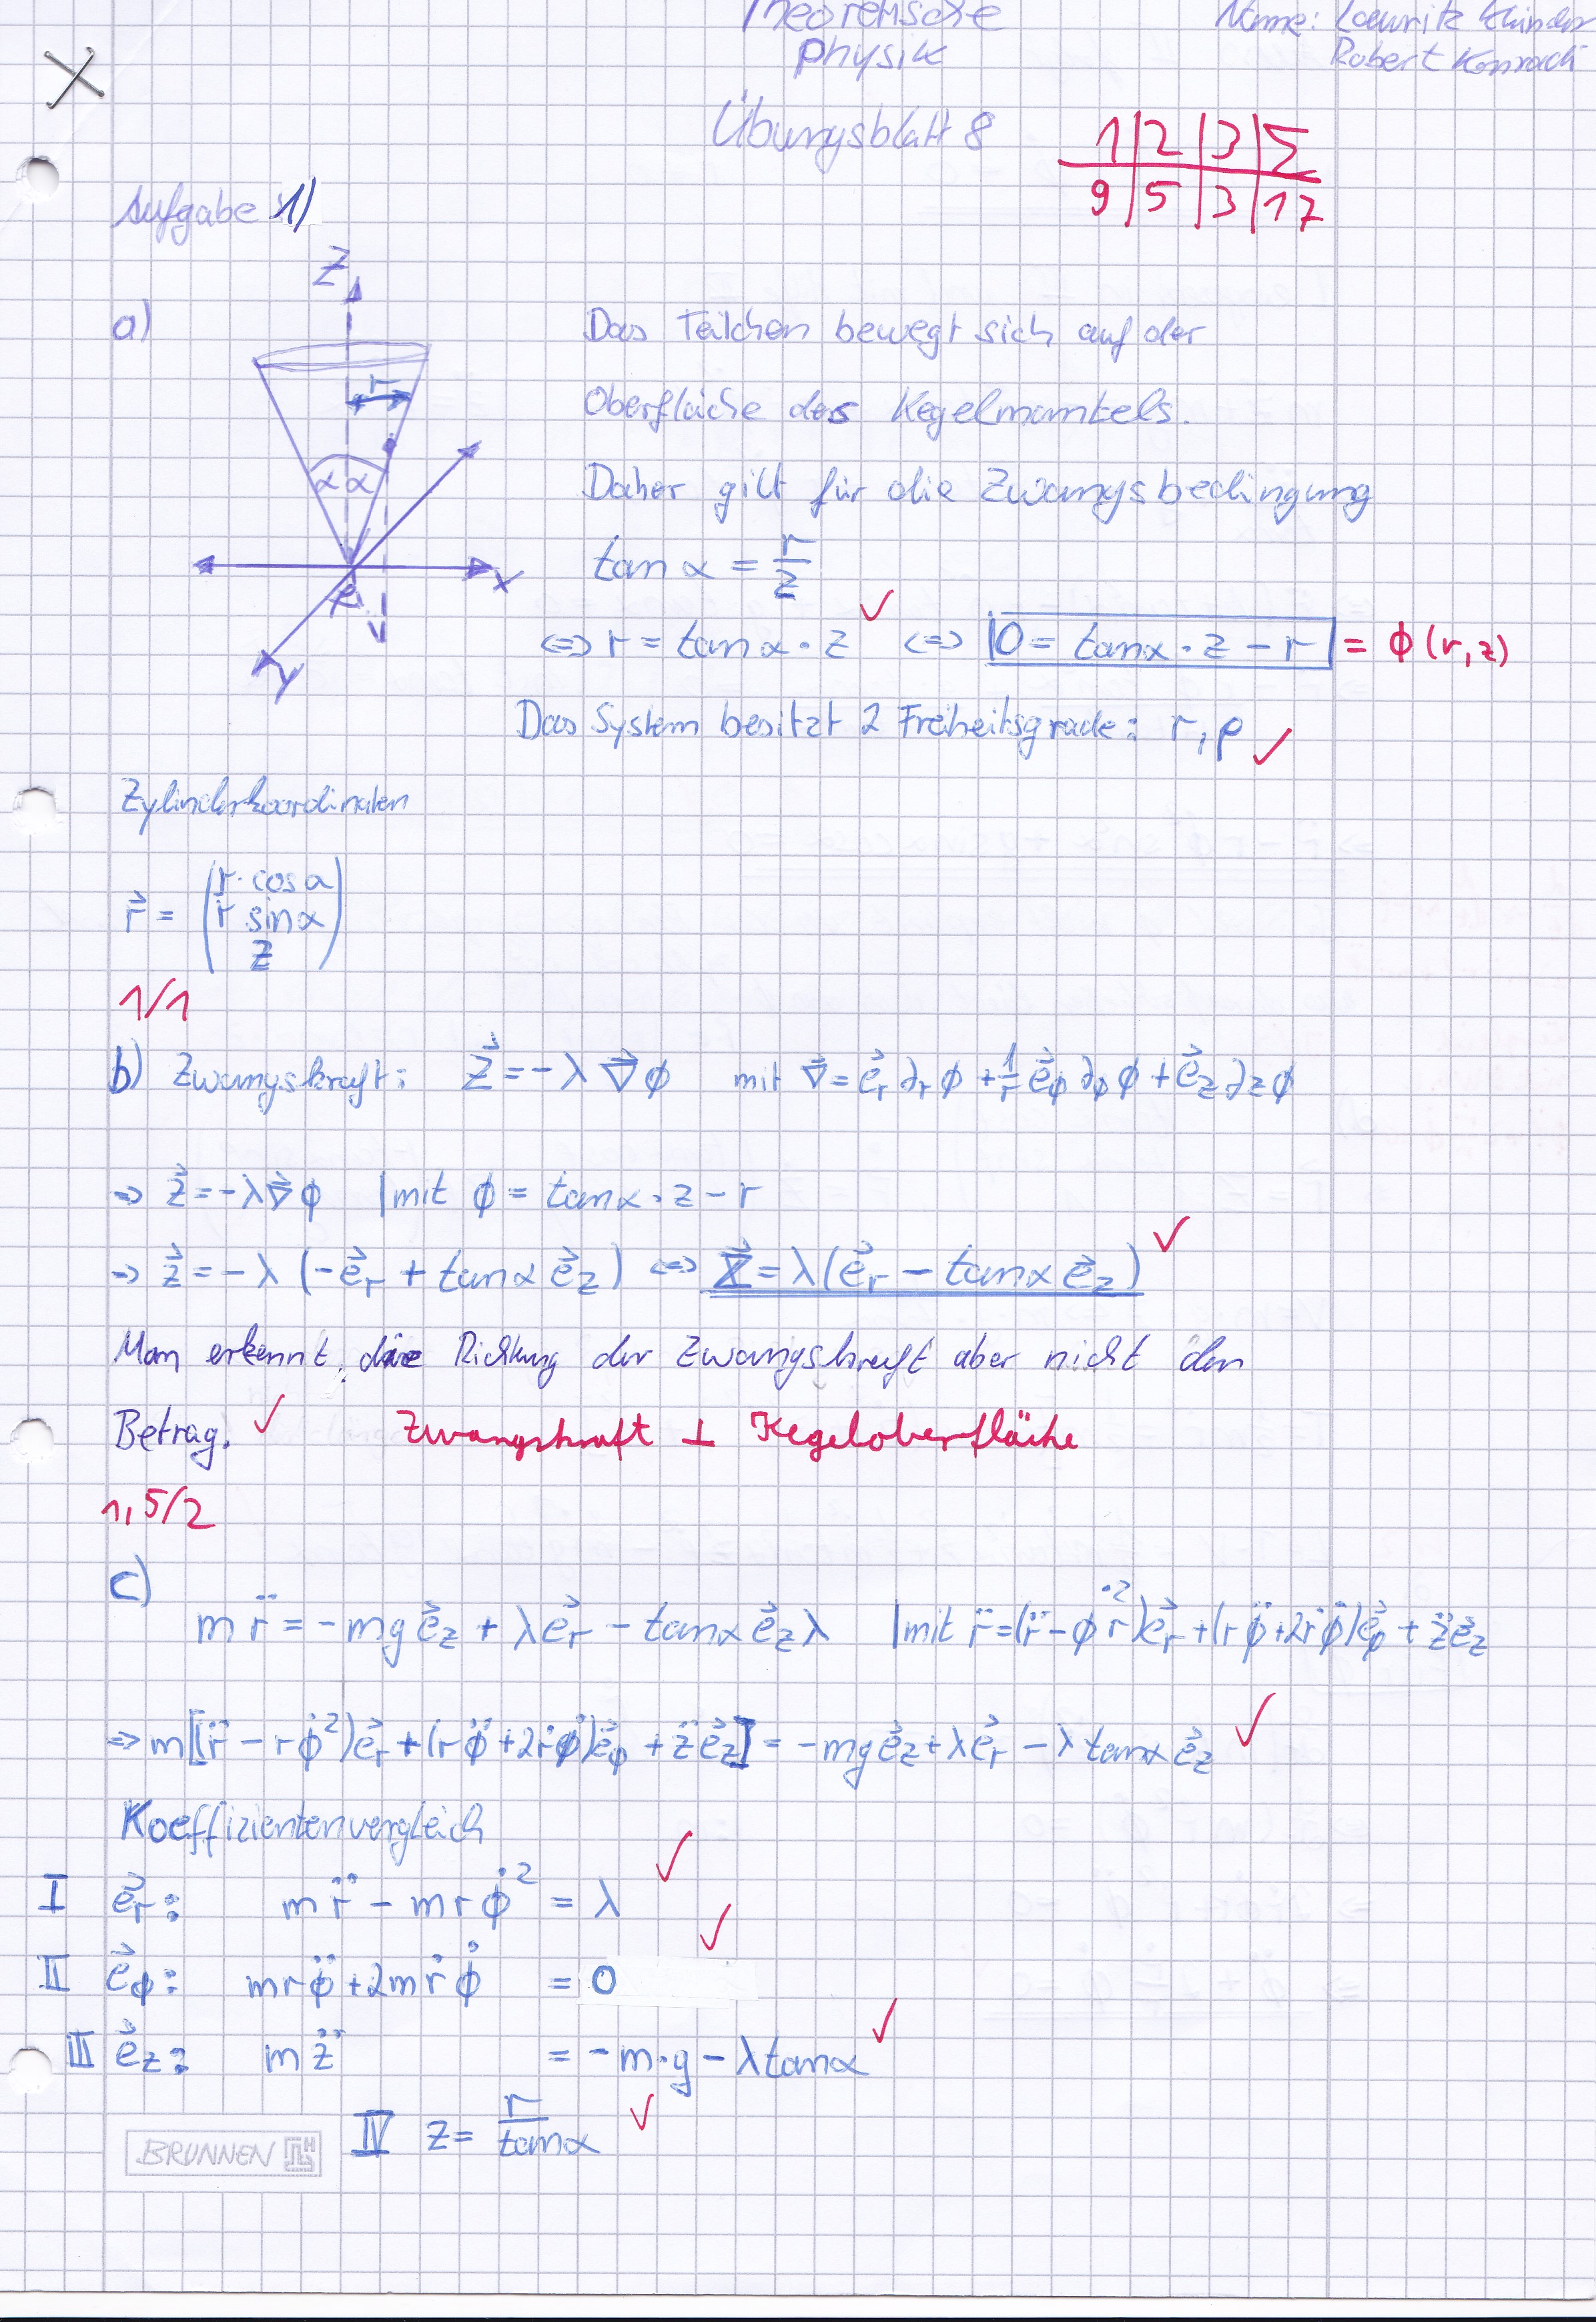 Theoretische
Physik
Name: Lauritz
Robert Konradi
Übungsblatt 8
1 | 2 | 3 | Σ
9 | 5 | 3 | 17
Aufgabe 1)
a)
z
r
α α
x
ρ
y
Das Teilchen bewegt sich auf der
Oberfläche des Kegelmantels.
Daher gilt für die Zwangsbedingung
tan α = r/z
⇔ r = tanα · z ✓ ⇔ 0 = tanα · z − r = ϕ(r,z)
Das System besitzt 2 Freiheitsgrade: r, ρ ✓
Zylinderkoordinaten
r⃗ = (r · cos α
r sin α
z)
1/1
b) Zwangskraft: Z⃗ = −λ ∇⃗ϕ mit ∇⃗ = e⃗_r ∂_r ϕ + 1/r e⃗_ϕ ∂_ϕ ϕ + e⃗_z ∂_z ϕ
⇒ z⃗ = −λ∇⃗ϕ | mit ϕ = tanα · z − r
⇒ z⃗ = −λ (−e⃗_r + tanα e⃗_z) ⇔ Z⃗ = λ(e⃗_r − tanα e⃗_z) ✓
Man erkennt, die Richtung der Zwangskraft aber nicht den
Betrag. ✓ Zwangskraft ⊥ Kegeloberfläche
1,5/2
c)
m r̈ = −mg e⃗_z + λe⃗_r − tanα e⃗_z λ | mit r̈ = (r̈ − ϕ̇² r)e⃗_r + (rϕ̈ + 2ṙϕ̇)e⃗_ϕ + z̈e⃗_z
⇒ m[(r̈ − rϕ̇²)e⃗_r + (rϕ̈ + 2ṙϕ̇)e⃗_ϕ + z̈e⃗_z] = −mge⃗_z + λe⃗_r − λ tanα e⃗_z ✓
Koeffizientenvergleich
I e⃗_r: m r̈ − m r ϕ̇² = λ ✓
II e⃗_ϕ: m r ϕ̈ + 2m ṙ ϕ̇ = 0 ✓
III e⃗_z: m z̈ = −m·g − λ tanα ✓
IV z = r/tanα ✓
BRUNNEN